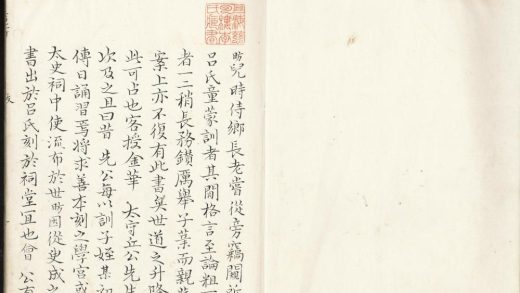 昉兒時侍鄉長老嘗從旁竊聞所
呂氏童蒙訓者其間格言至論粗
者一二稍長務鑽厲舉子業而親
案上亦不復有此書矣世道之升降
此可占也客授金華 太守丘公先生
次及之且曰昔 先公每以訓子姪某初
傳日誦習焉將求善本刻之學宮或
太史祠中使流布於世昉因從臾成之
書出於呂氏刻於祠堂宜也會 公有